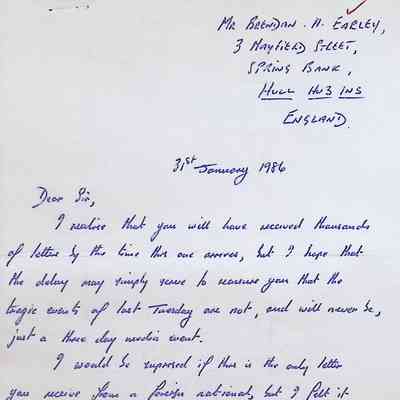 Mr Brendan . A. Earley,
3 Mayfield Street,
Spring Bank,
Hull HU3 1NS
England.
31st January 1986
Dear Sir,
I realise that you will have received thousands
of letters by the time this one arrives, but I hope that
the delay may simply serve to reassure you that the
tragic events of last Tuesday are not, and will never be,
just a three day media event.
I would be surprised if this is the only letter
you receive from a foreign national, but I felt it